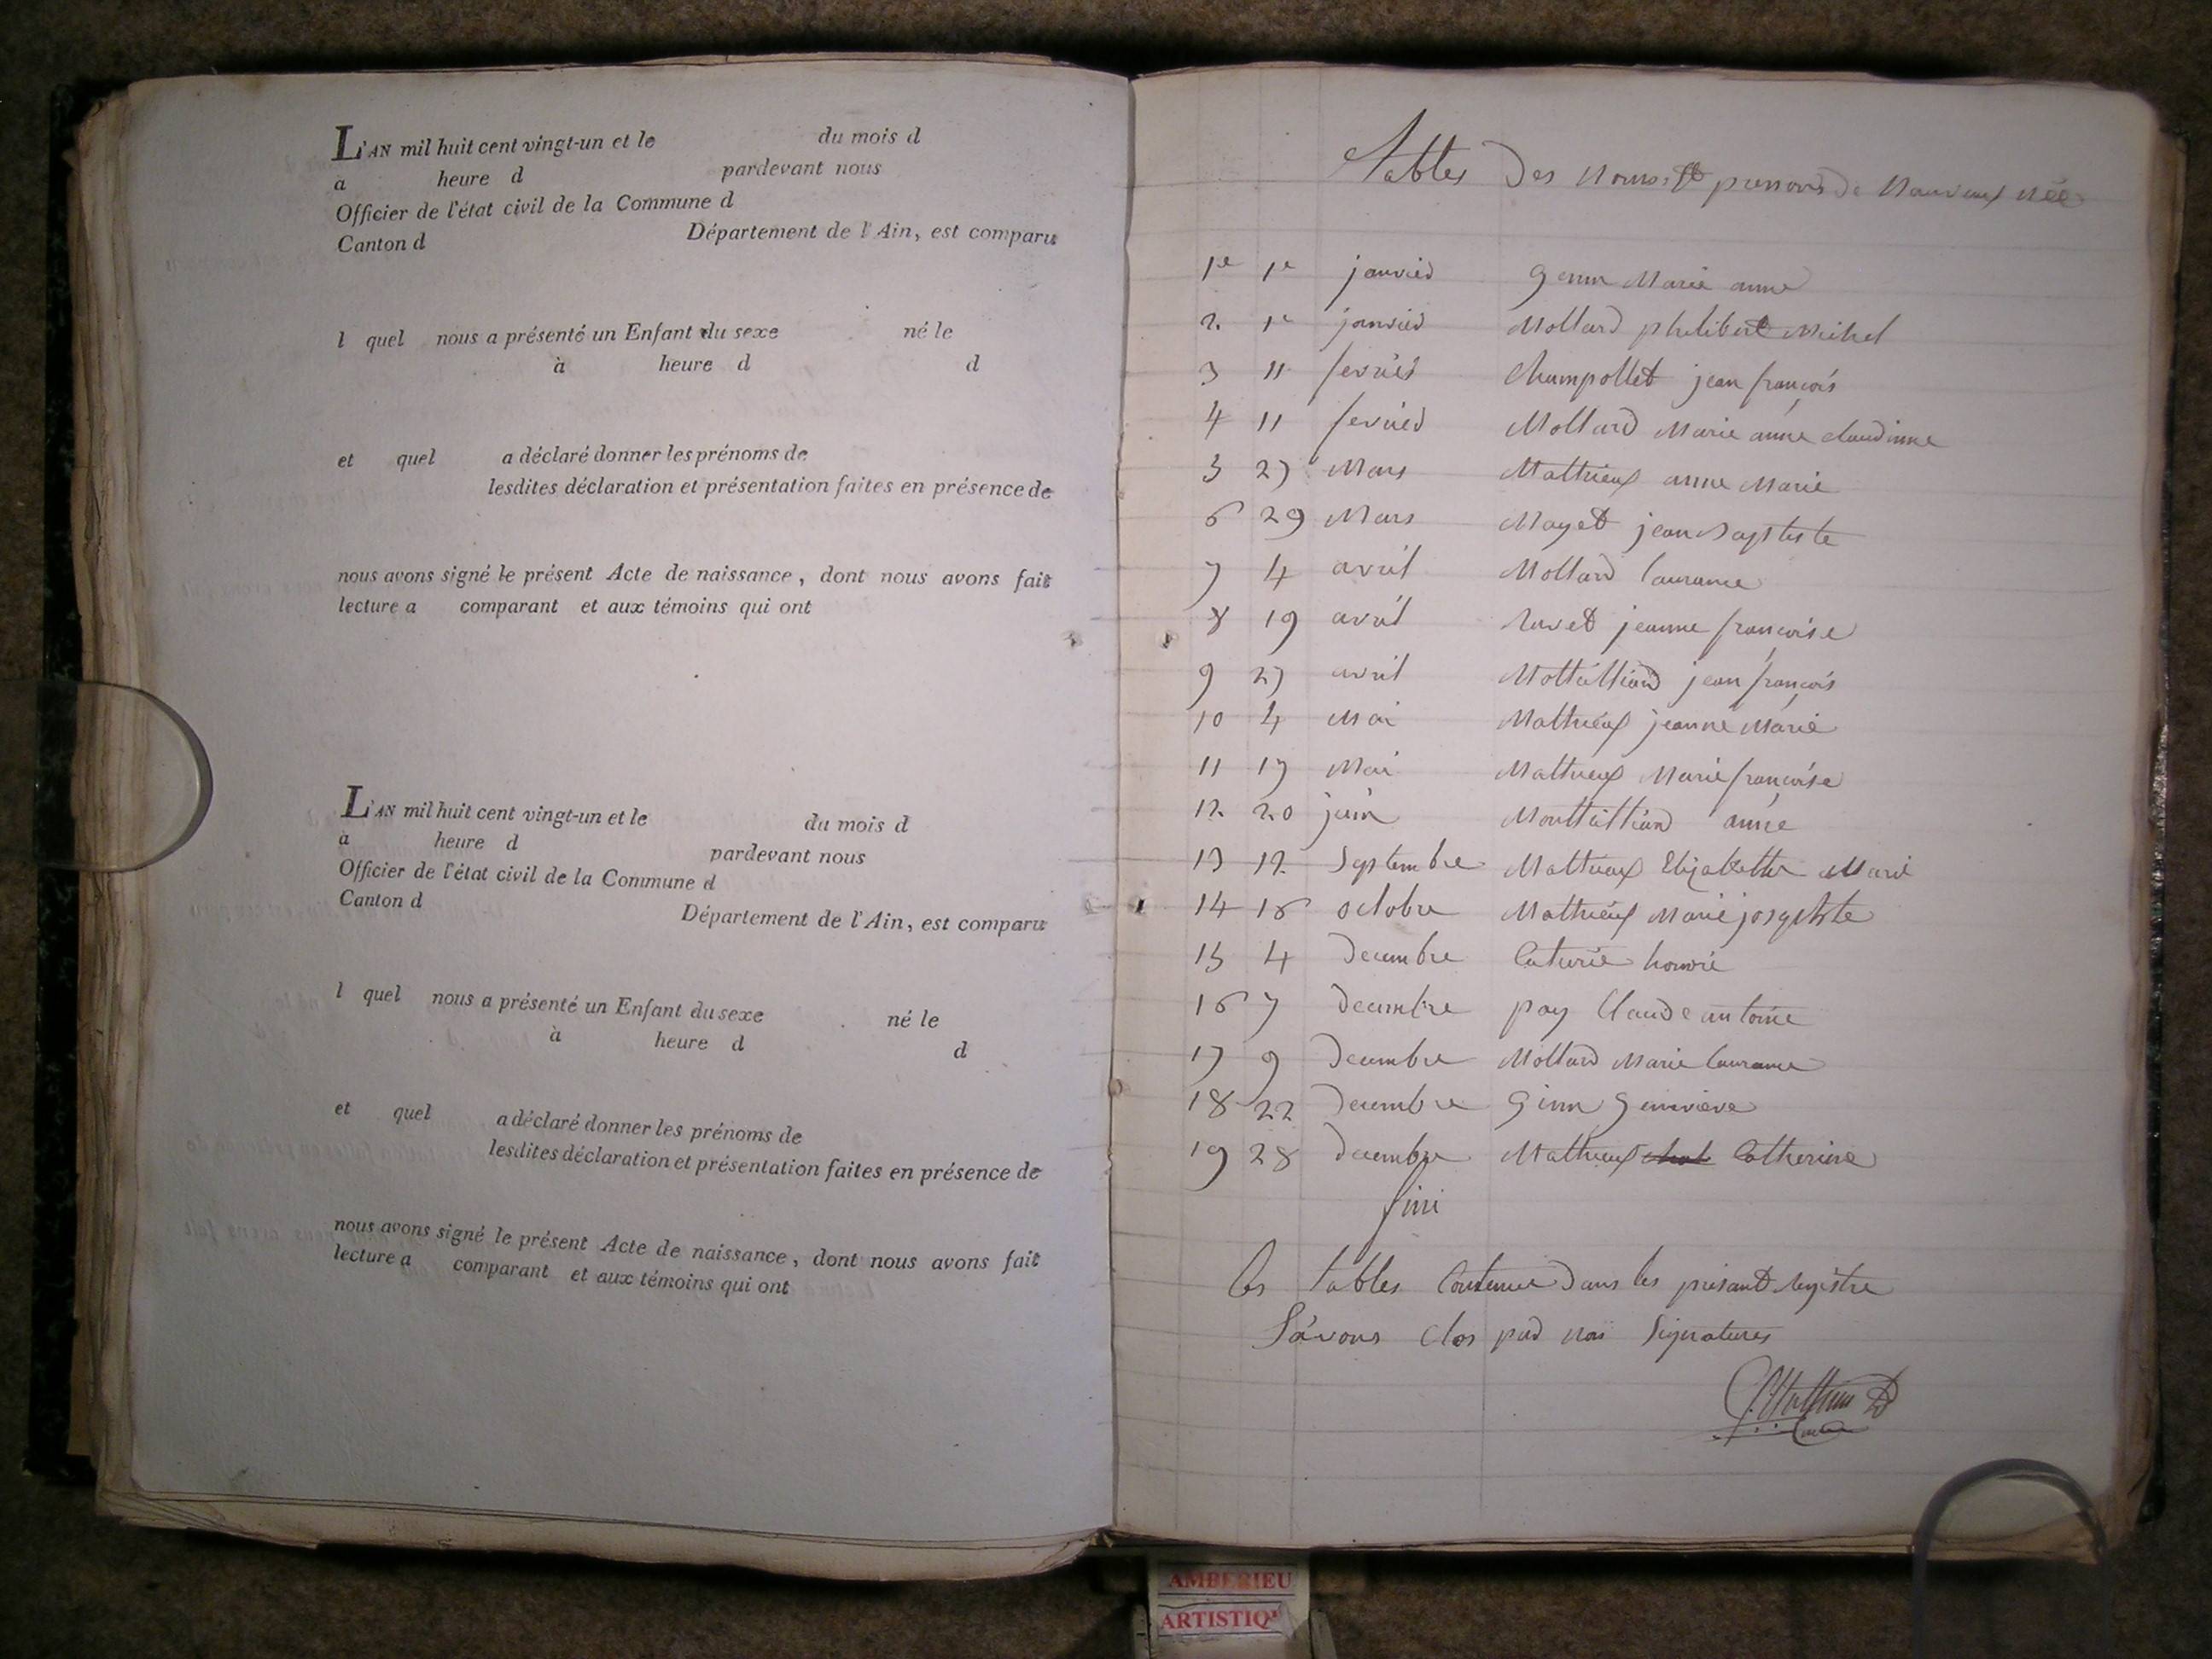 L'AN mil huit cent vingt-un et le du mois d
a heure d pardevant nous
Officier de l'état civil de la Commune d
Canton d Département de l'Ain, est comparu
l quel nous a présenté un Enfant du sexe né le
à heure d d
et quel a déclaré donner les prénoms de
lesdites déclaration et présentation faites en présence de
nous avons signé le présent Acte de naissance, dont nous avons fait
lecture a comparant et aux témoins qui ont
L'AN mil huit cent vingt-un et le du mois d
a heure d pardevant nous
Officier de l'état civil de la Commune d
Canton d Département de l'Ain, est comparu
l quel nous a présenté un Enfant du sexe né le
à heure d d
et quel a déclaré donner les prénoms de
lesdites déclaration et présentation faites en présence de
nous avons signé le présent Acte de naissance, dont nous avons fait
lecture a comparant et aux témoins qui ont
tables des noms et prenoms de nouveaux née
1e 1e janvier Marie anne
2 1e janvier Mollard philibert Michel
3 11 fevrier Chumpollet jean françois
4 11 fevrier Mollard Marie anne claudinne
5 27 Mars Mathieux anne Marie
6 29 Mars Mayet jean baptiste
7 4 avril Mollard laurance
8 19 avril ravet jeanne françoise
9 27 avril jean françois
10 4 Mai Mathieux jeanne Marie
11 17 Mai Mathieux Marie françoise
12 20 juin anne
13 12 Septembre Mathieux Elizabethe Marie
14 16 octobre Mathieux Marie josephte
15 4 decembre honoré
16 7 decembre pay Claude antoine
17 9 decembre Mollard Marie laurance
18 22 decembre genevieve
19 28 decembre Mathieux Catherine
fini
les tables Contenue dans les présant registre
l'avons clos par nos signatures
AMBERIEU
ARTISTIQ